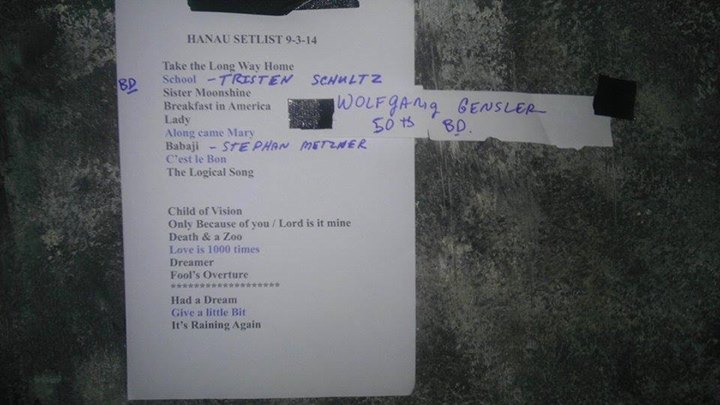 HANAU SETLIST 9-3-14
Take the Long Way Home
BD School - TRISTEN SCHULTZ
Sister Moonshine
Breakfast in America
WOLFGANG GENSLER
50th BD.
Lady
Along came Mary
Babaji - STEPHAN METZNER
C'est le Bon
The Logical Song
Child of Vision
Only Because of you / Lord is it mine
Death & a Zoo
Love is 1000 times
Dreamer
Fool's Overture
*******************
Had a Dream
Give a little Bit
It's Raining Again